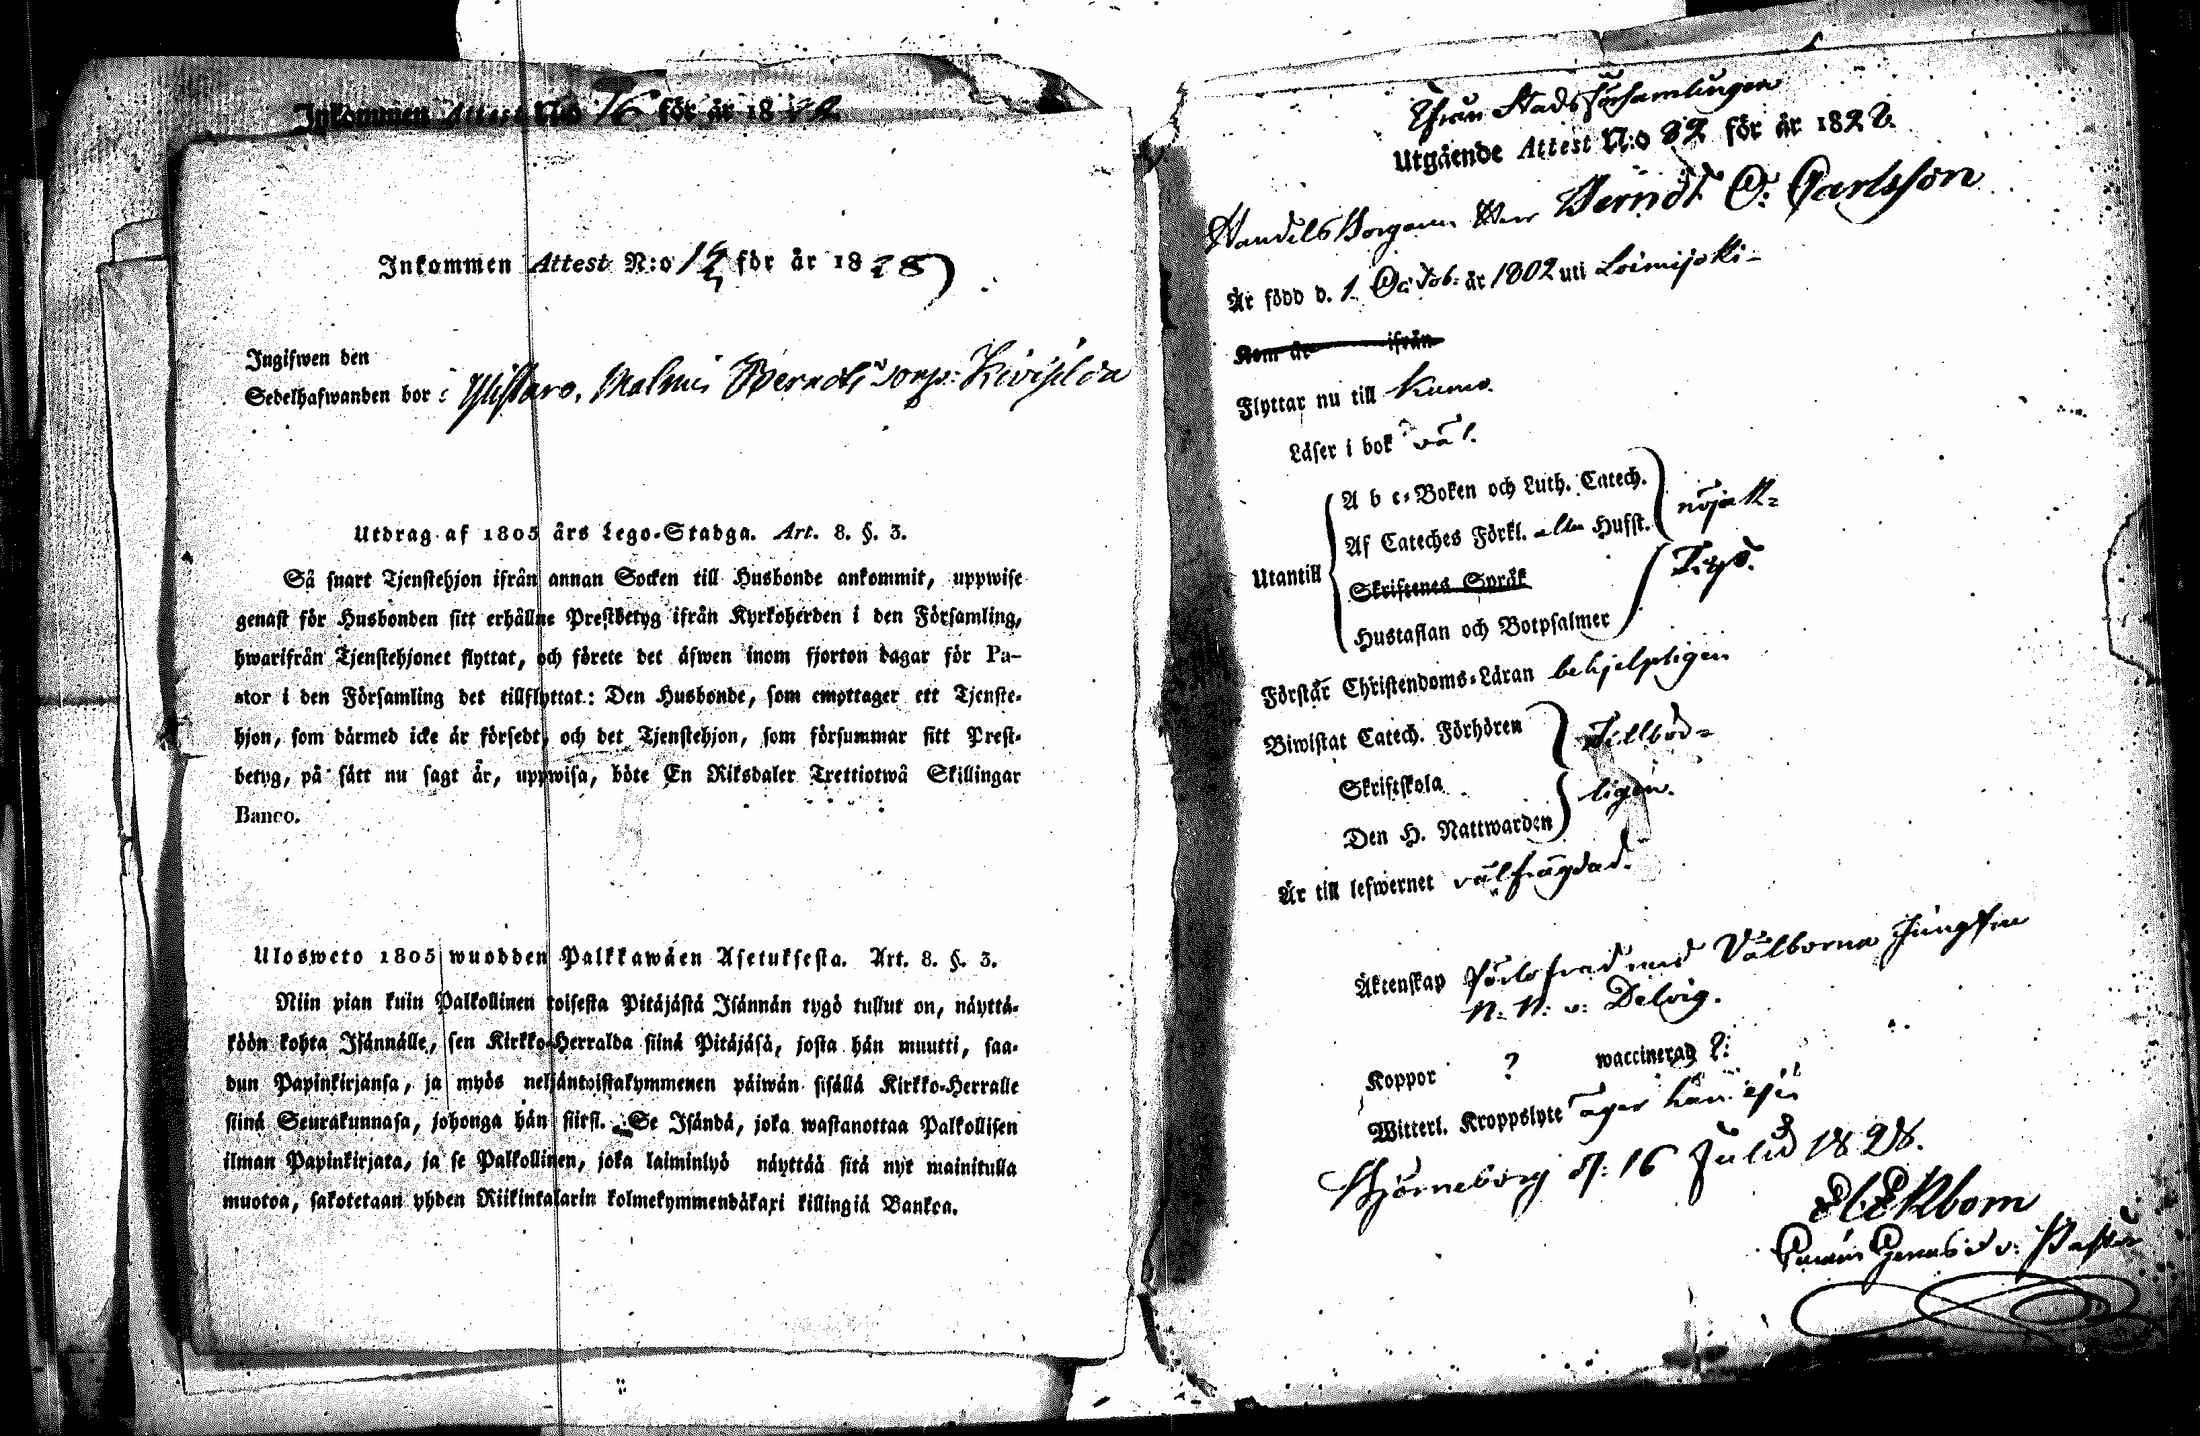 Inkommen Attest No 76 för år 18
Inkommen Attest N:o 12 för år 1828
Ingifwen den
Sedelhafwanden bor i Malmis Berndts torp: Kivisilda
Utdrag af 1805 års Lego-Stadga. Art. 8. §. 3.
Så snart Tjenstehjon ifrån annan Socken till Husbonde ankommit, uppwise
genast för Husbonden sitt erhållne Prestbetyg ifrån Kyrkoherden i den Församling,
hwarifrån Tjenstehjonet flyttat, och förete det äfwen inom fjorton dagar för Pa-
stor i den Församling det tillflyttat: Den Husbonde, som emottager ett Tjenste-
hjon, som därmed icke är försedt, och det Tjenstehjon, som försummar sitt Prest-
betyg, på sätt nu sagt är, uppwisa, böte En Riksdaler Trettiotwå Skillingar
Banco.
Ulosweto 1805 wuodden Palkkawäen Asetuksesta. Art. 8. §. 3.
Niin pian kuin Palkollinen toisesta Pitäjästä Isännän tygö tullut on, näyttä-
köön kohta Isännälle, sen Kirkko-Herralda siinä Pitäjäsä, josta hän muutti, saa-
dun Papinkirjansa, ja myös neljäntoistakymmenen päiwän sisällä Kirkko-Herralle
siinä Seurakunnasa, johonga hän siirsi. Se Isändä, joka wastanottaa Palkollisen
ilman Papinkirjata, ja se Palkollinen, joka laiminlyö näyttää sitä nyt mainitulla
muotoa, sakotetaan yhden Riikintalarin kolmekymmendäkaxi killingiä Bankoa.
Ifrån Stadsförsamlingen
Utgående Attest N:o 82 för år 1828.
Handels Borgaren Herr Berndt O: Carlsson
Är född d. 1 Octob: år 1802 uti Loimijoki
Kom år ifrån
Flyttar nu till Kumo.
Läser i bok väl.
Utantill
A b c-Boken och Luth. Catech.
Af Cateches Förkl. alla Husst.
nöjakt-
Skriftenes Språk
Hustaflan och Botpsalmer
Förstår Christendoms-Läran behjelpligen
Biwistat Catech. Förhören
Skriftskola
Den H. Nattwarden
Tillbör-
ligen.
Är till lefwernet välfrägdad.
Äktenskap förlofvad med Välborna Jungfru
N: N: v: Delvig.
Koppor ? waccinerad ?:
Witterl. Kroppslyte äger han ej.
Björneborg d: 16 Julii 1828.
Ekbom
v: Pastor